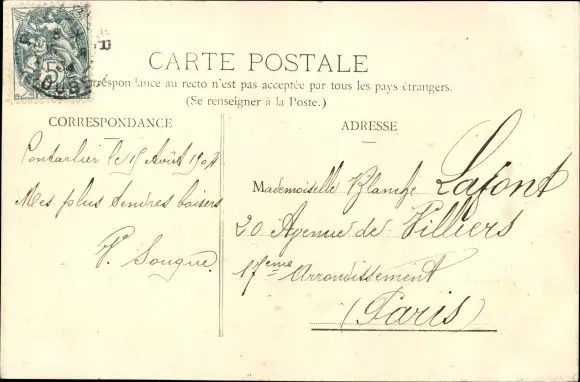 CARTE POSTALE
correspondance au recto n'est pas acceptée par tous les pays étrangers.
(Se renseigner à la Poste.)
CORRESPONDANCE
Pontarlier le 15 Août 1904
Mes plus tendres baisers
ADRESSE
Mademoiselle Blanche Lafont
20 Avenue de Villiers
17eme Arrondissement
(Paris)
5